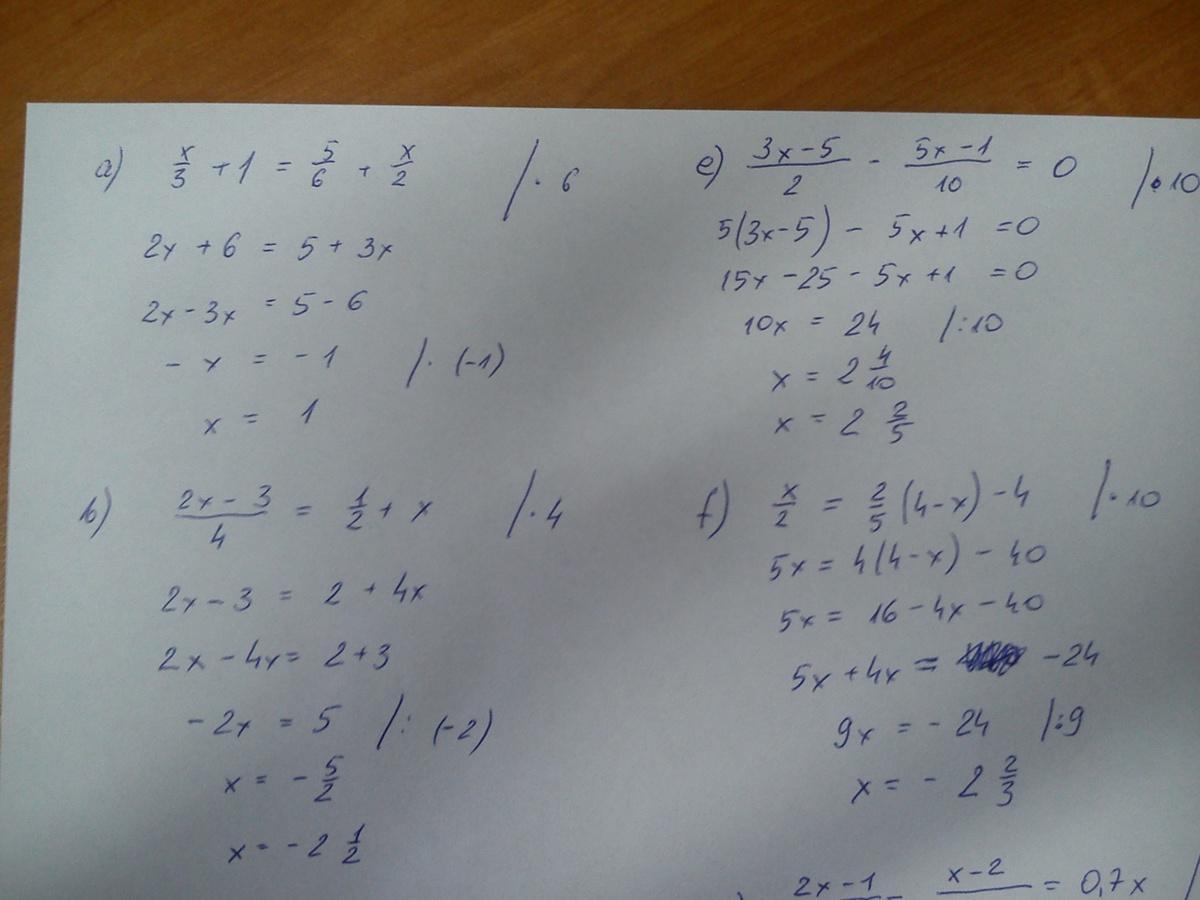 a) x/3 + 1 = 5/6 + x/2 /· 6
2x + 6 = 5 + 3x
2x - 3x = 5 - 6
- x = - 1 /· (-1)
x = 1
b) (2x - 3)/4 = 1/2 + x /· 4
2x - 3 = 2 + 4x
2x - 4x = 2 + 3
- 2x = 5 /: (-2)
x = - 5/2
x = - 2 1/2
e) (3x - 5)/2 - (5x - 1)/10 = 0 /· 10
5(3x - 5) - 5x + 1 = 0
15x - 25 - 5x + 1 = 0
10x = 24 /: 10
x = 2 4/10
x = 2 2/5
f) x/2 = 2/5 (4 - x) - 4 /· 10
5x = 4(4 - x) - 40
5x = 16 - 4x - 40
5x + 4x = - 24
9x = - 24 /: 9
x = - 2 2/3
2x - 1 - x - 2 = 0,7x /